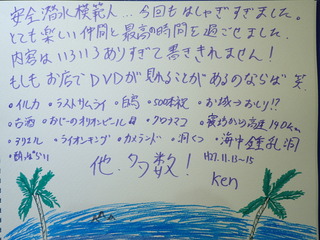 安全潜水模範人…今回もはしゃぎすぎました。
とても楽しい仲間と最高の時間を過ごせました。
内容はいろいろありすぎて書ききれません!
もしもお店でDVDが見れることがあるのならば 笑
・イルカ ・ラストサムライ ・白鳥 ・500本祝 ・お城つおしり!?
・古酒 ・おじーのオリオンビール ・クロナマコ ・寝坊から高速140km
・タリエル ・ライオンキング ・カメランド ・洞くつ ・海中鍾乳洞
・酔っぱらい
他、多数!
'07.11.13~15
Ken